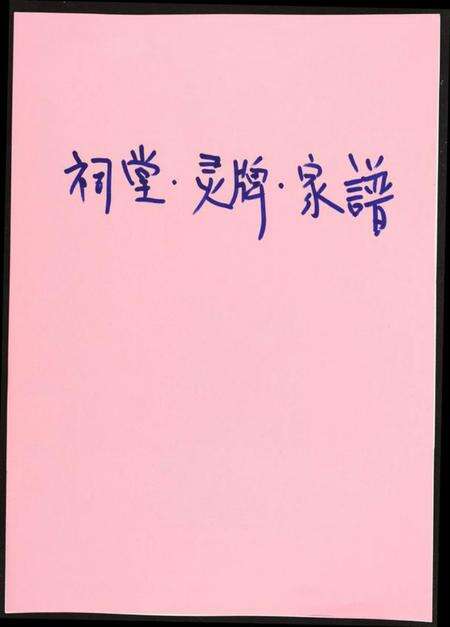 祠堂·灵牌·家譜